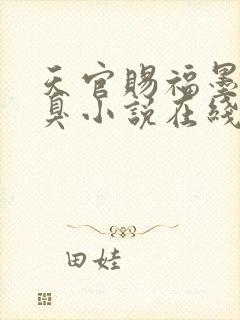 天官賜福墨
臭小説在綫
田娃